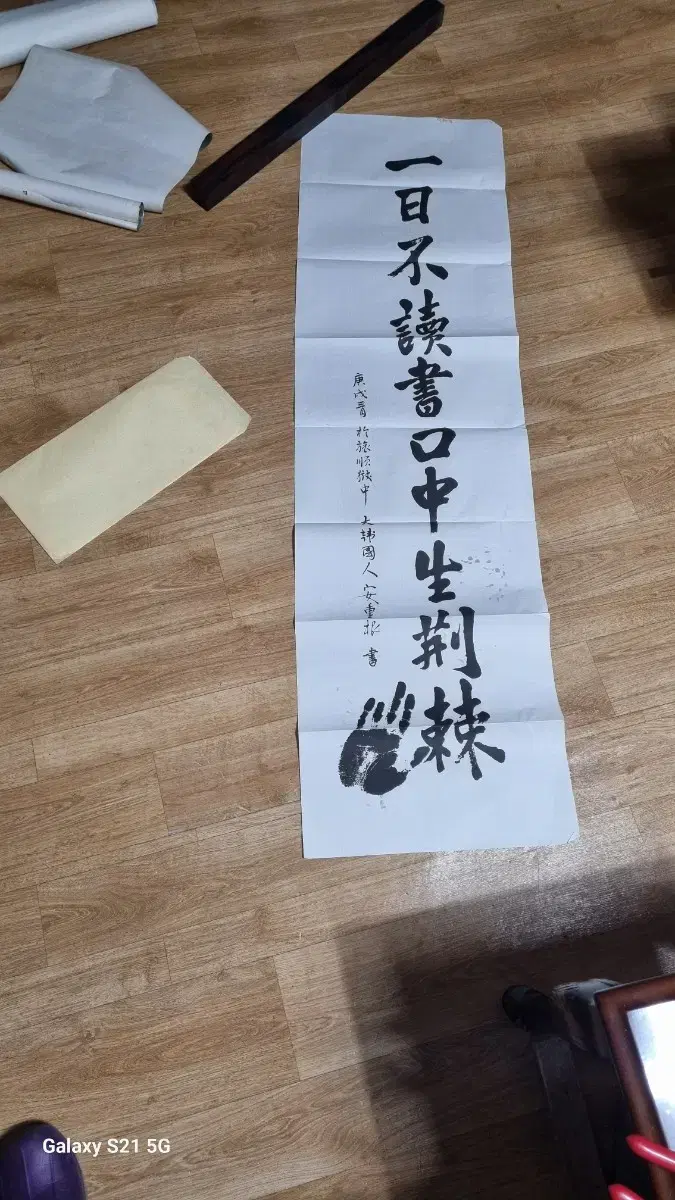 一日不讀書口中生荆棘
庚戌三月 於旅順獄中 大韓國人 安重根 書
Galaxy S21 5G